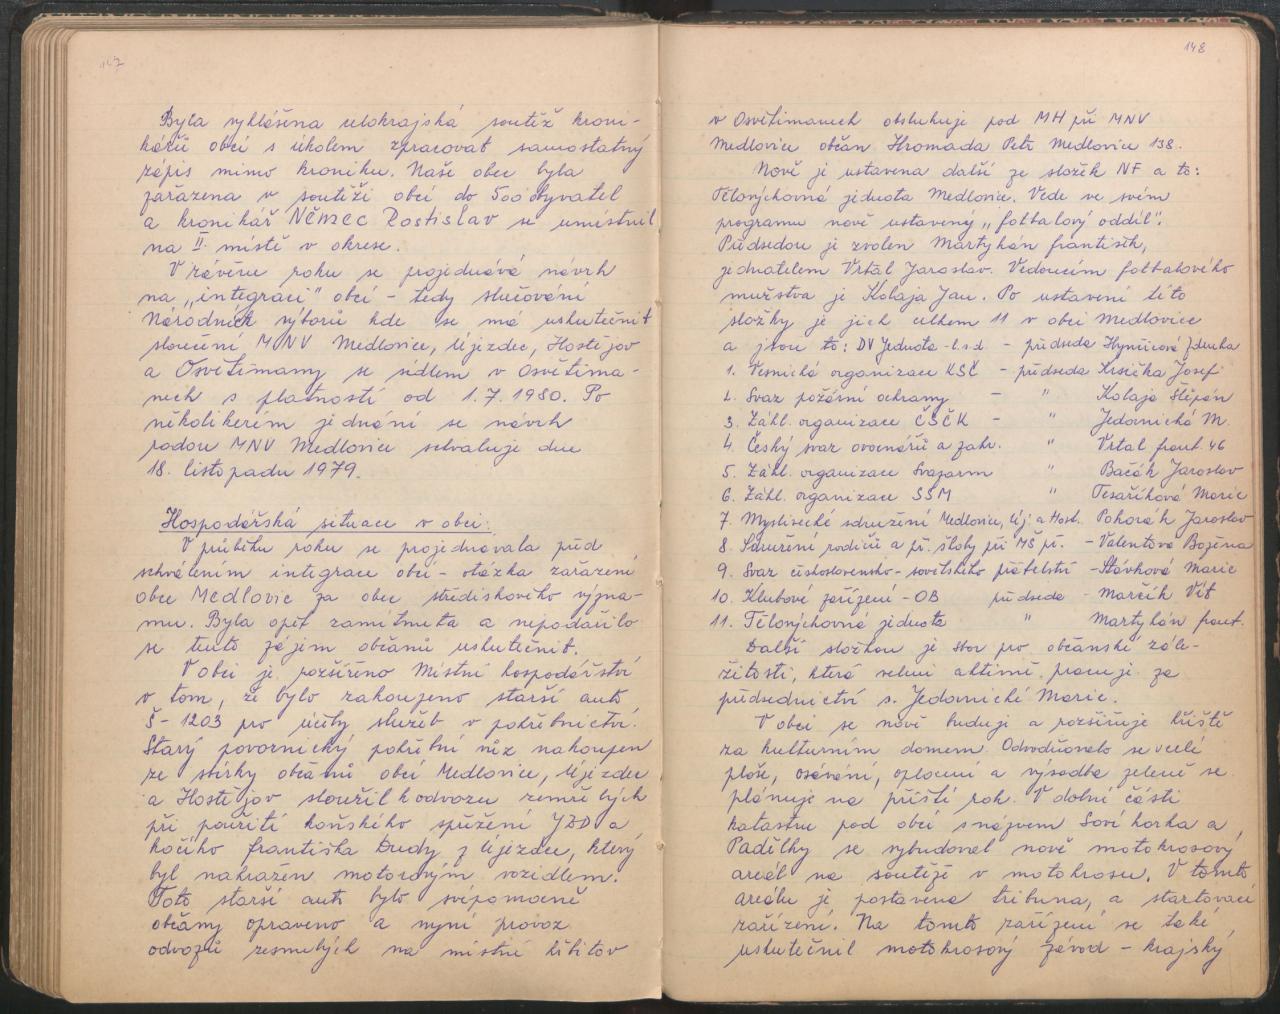 147
Byla vyhlášena celokrajská soutěž kroni-
kářů obcí s úkolem zpracovat samostatný
zápis mimo kroniku. Naše obec byla
zařazena v soutěži obcí do 500 obyvatel
a kronikář Němec Rostislav se umístnil
na II. místě v okrese.
V závěru roku se projednává návrh
na „integraci" obcí - tedy slučování
Národních výborů kde se má uskutečnit
sloučení MNV Medlovice, Újezdec, Hostějov
a Osvětimany se sídlem v Osvětima-
nech s platností od 1.7.1980. Po
několikerém jednání se návrh
radou MNV Medlovice schvaluje dne
18. listopadu 1979.
Hospodářská situace v obci:
V průběhu roku se projednávala před
schválením integrace obcí - otázka zařazení
obce Medlovic za obec střediskového význa-
mu. Byla opět zamítnuta a nepodařilo
se tento zájem občanů uskutečnit.
V obci je rozšířeno Místní hospodářství
v tom, že bylo zakoupeno starší auto
Š-1203 pro účely služeb v pohřebnictví.
Starý povoznický pohřební vůz nakoupen
ze sbírky občanů obcí Medlovice, Újezdec
a Hostějov sloužil k odvozu zemřelých
při použití koňského spřežení JZD a
kočího Františka Dudy z Újezdce, který
byl nahrazen motorovým vozidlem.
Toto starší auto bylo svépomocně
občany opraveno a nyní provoz
odvozů zesnulých na místní hřbitov
148
v Osvětimanech obsluhuje pod MH při MNV
Medlovice občan Hromada Petr Medlovice 138.
Nově je ustavena další ze složek NF a to:
Tělovýchovná jednota Medlovice. Vede ve svém
programu nově ustavený „fotbalový oddíl".
Předsedou je zvolen Martykán František,
jednatelem Vrtal Jaroslav. Vedoucím fotbalového
mužstva je Kolaja Jan. Po ustavení této
složky je jich celkem 11 v obci Medlovice
a jsou to: DV Jednota - l.s.d. - předseda Hynčicová Zdenka
1. Vesnická organizace KSČ - předseda Krsička Josef
2. Svaz požární ochrany - " Kolaja Štěpán
3. Zákl. organizace ČSČK - " Jedovnická M.
4. Český svaz ovocnářů a zahr. " Vrtal Frant. 46
5. Zákl. organizace Svazarm " Bačák Jaroslav
6. Zákl. organizace SSM " Tesaříková Marie
7. Myslivecké sdružení Medlovice, Új. a Host. Pohořák Jaroslav
8. Sdružení rodičů a př. školy při MŠ př. - Valentová Božena
9. Svaz československo-sovětského přátelství - Stávková Marie
10. Klubové zařízení - OB předseda - Marčík Vít
11. Tělovýchovná jednota " Martykán Frant.
Další složkou je sbor pro občanské zále-
žitosti, která velmi aktivně pracuje za
předsednictví s. Jedovnické Marie.
V obci se nově buduje a rozšiřuje hřiště
za kulturním domem. Odvodňovalo se vcelé
ploše, osévání, oplocení a výsadba zeleně se
plánuje na příští rok. V dolní části
katastru pod obcí s názvem Soví horka a
Padělky se vybudoval nově motokrosový
areál na soutěže v motokrosu. V tomto
areálu je postavena tribuna, a startovací
zařízení. Na tomto zařízení se také
uskutečnil motokrosový závod - krajský